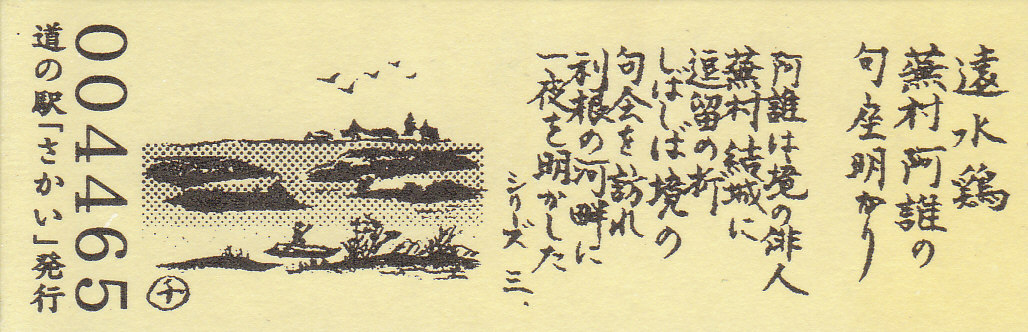 遠水鶏
蕪村阿誰の
句座明かり
阿誰は境の俳人
蕪村結城に
逗留の折
しばしば境の
句会を訪れ
利根の河畔に
一夜を明かした
シリーズ 三.
千
004465
道の駅「さかい」発行